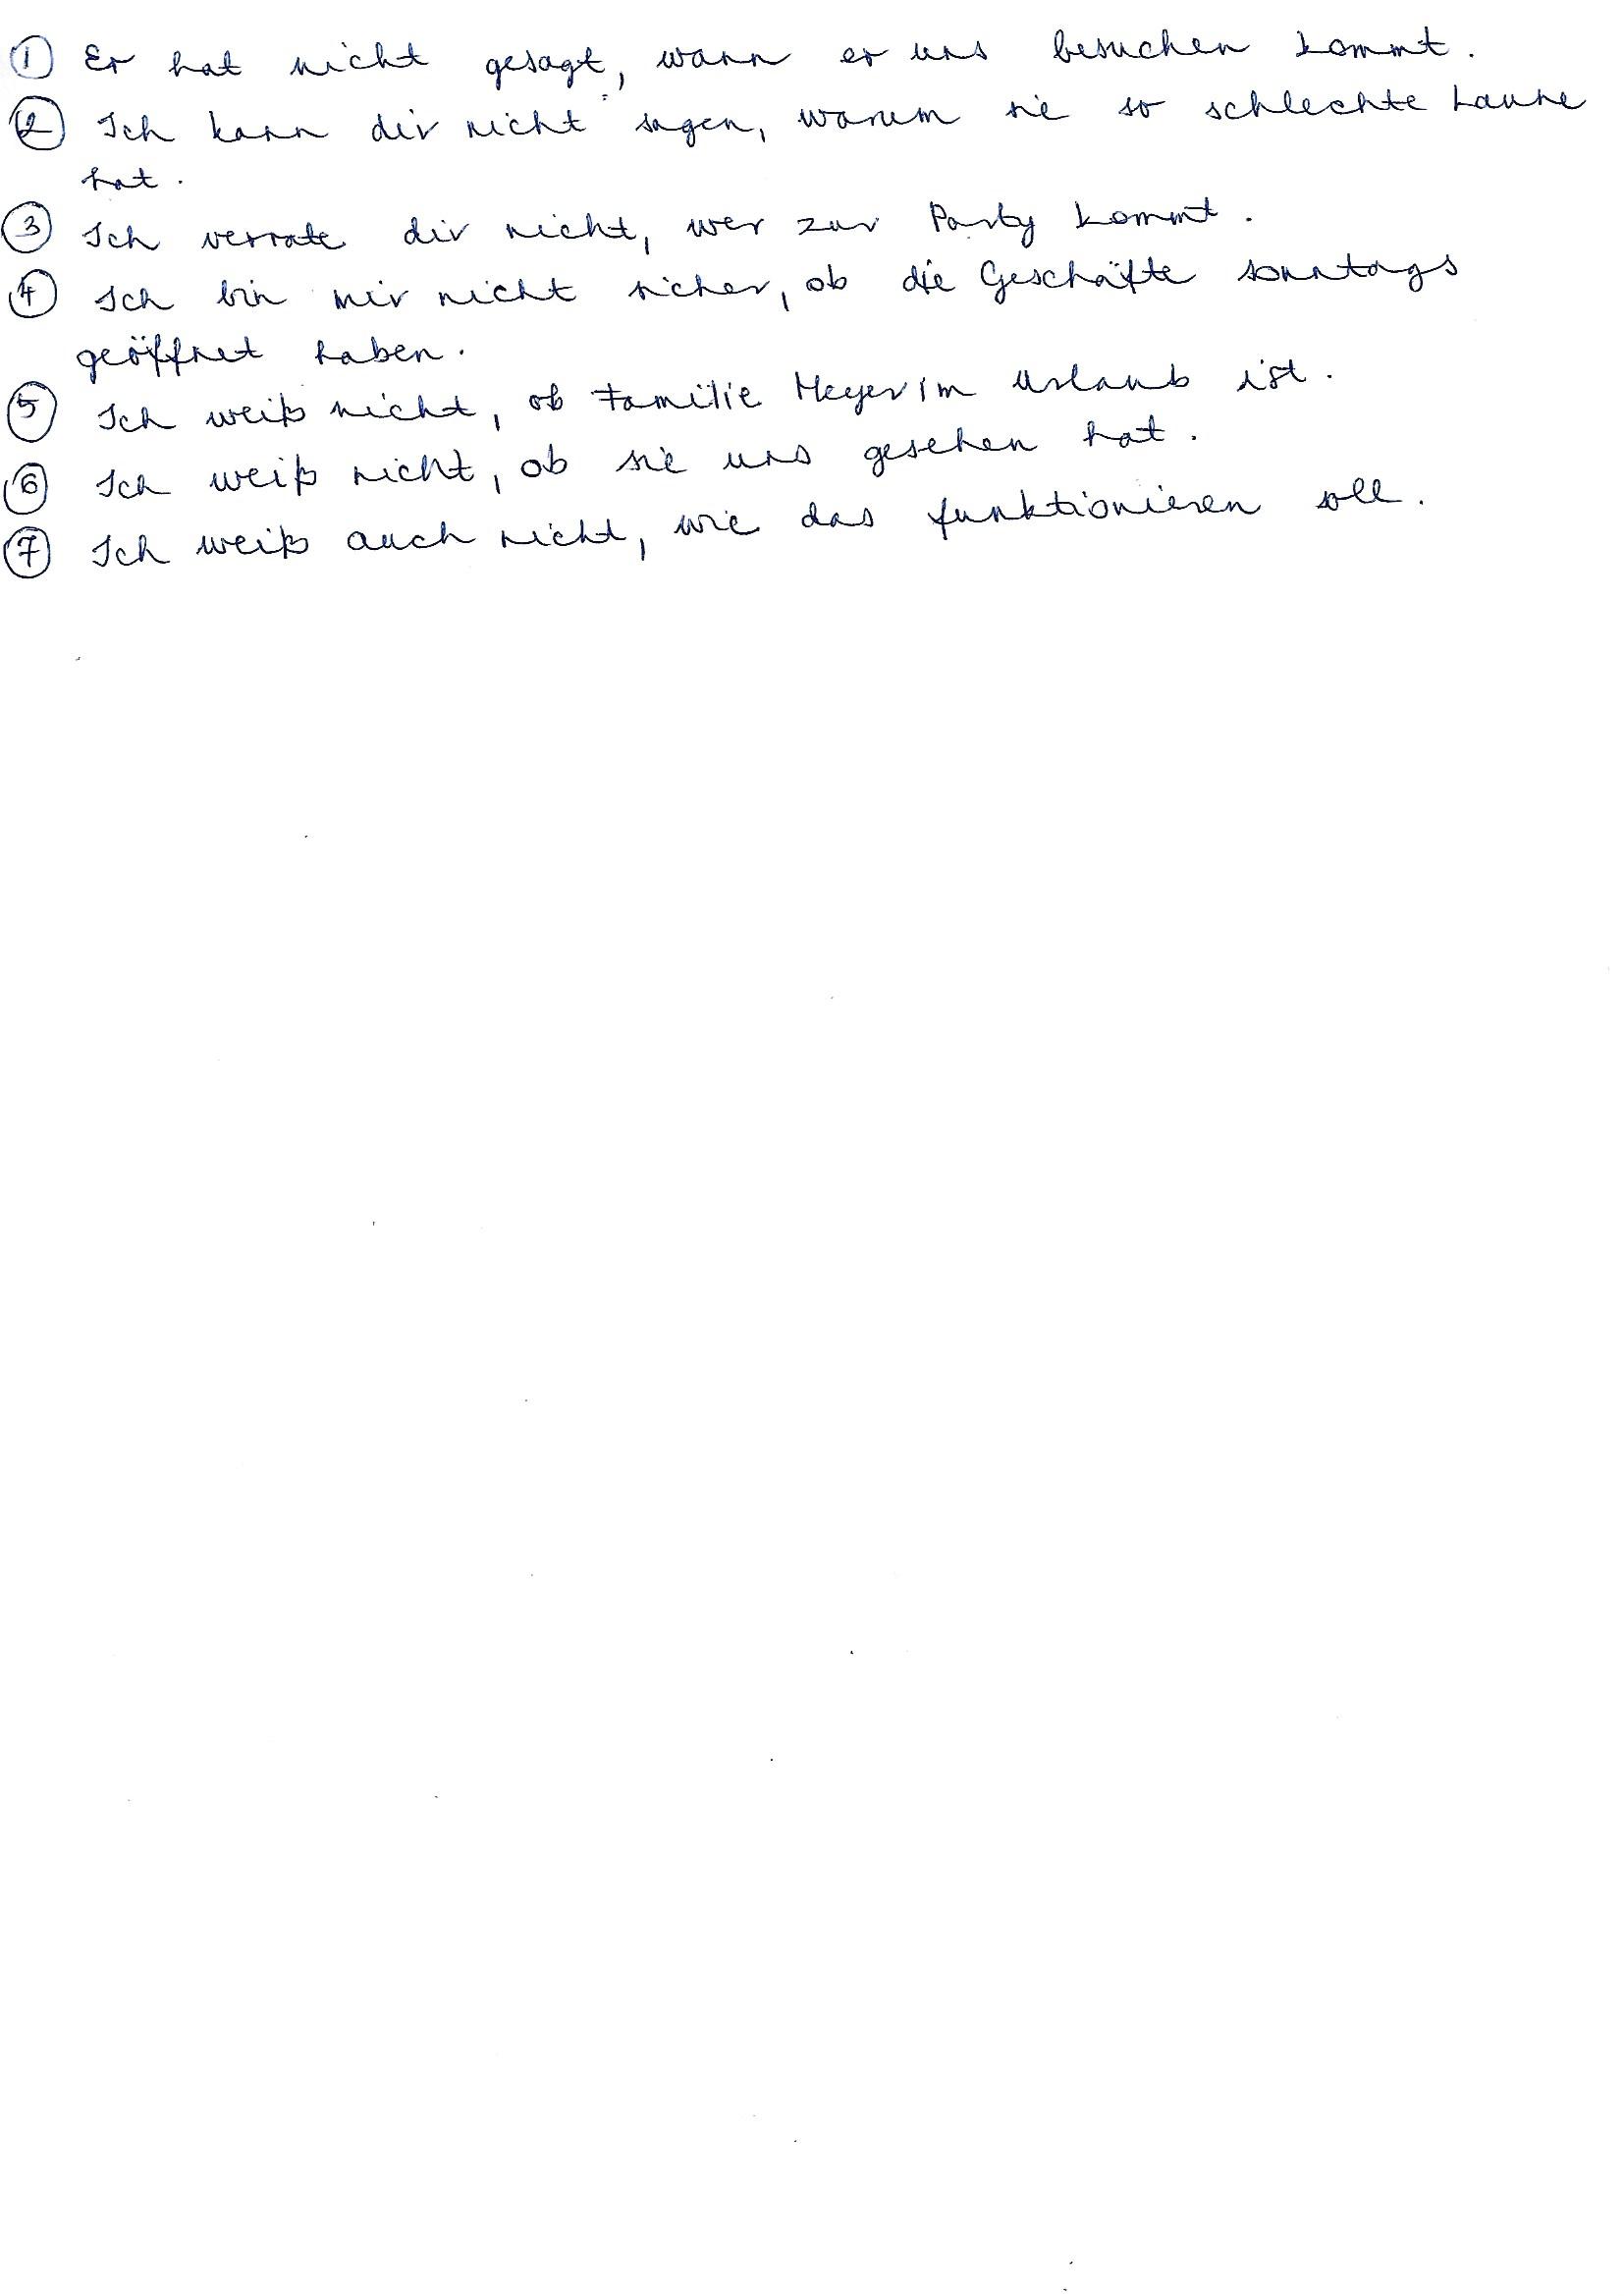 ① Er hat nicht gesagt, wann er uns besuchen kommt.
② Ich kann dir nicht sagen, warum sie so schlechte Laune
hat.
③ Ich verrate dir nicht, wer zur Party kommt.
④ Ich bin mir nicht sicher, ob die Geschäfte sonntags
geöffnet haben.
⑤ Ich weiß nicht, ob Familie Meyer im Urlaub ist.
⑥ Ich weiß nicht, ob sie uns gesehen hat.
⑦ Ich weiß auch nicht, wie das funktionieren soll.